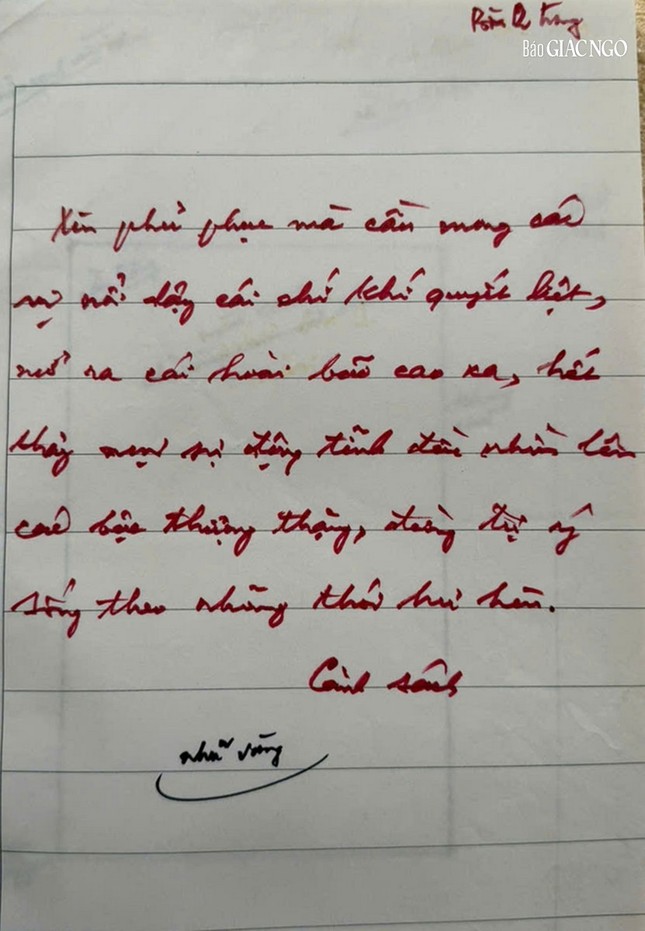 Báo GIÁC NGỘ
Xin phủ phục mà cầu mong các
vị nổi dậy cái chí khí quyết liệt,
mở ra cái hoài bão cao xa, hết
thảy mọi sự động tĩnh đều nhìn lên
các bậc thượng thặng, đừng tự ý
sống theo những thói hư hèn.
Cảnh sách
nhũ vàng